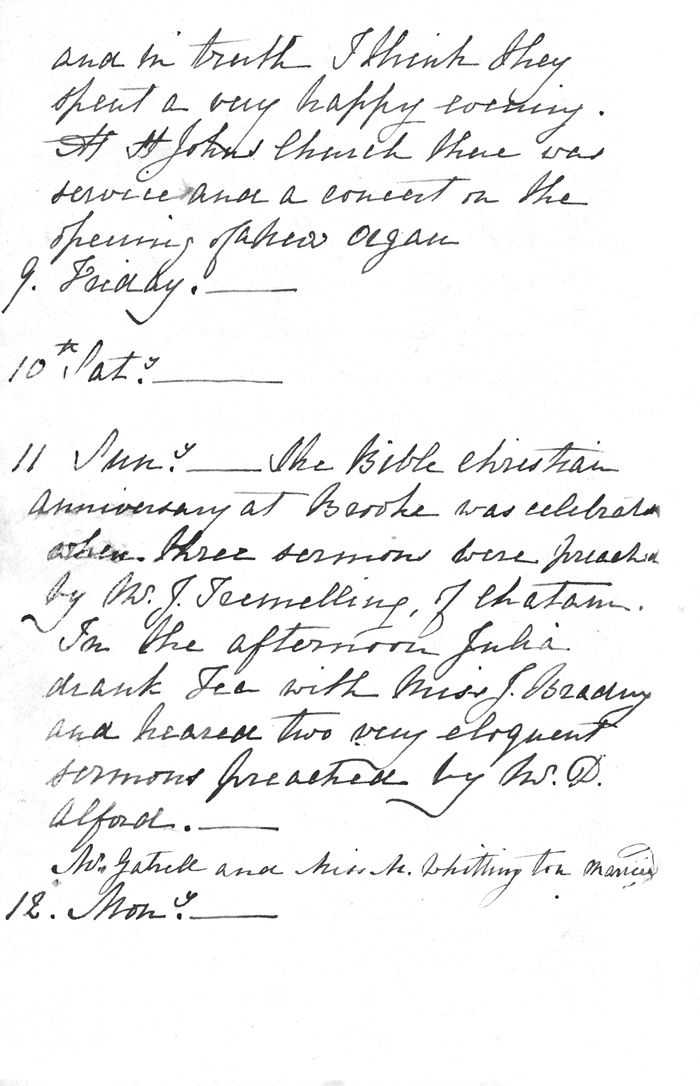 and in truth I think they
spent a very happy evening.
At St Johns Church there was
service and a concert on the
opening of a new organ
9. Friday.
10th Saty.
11 Suny. The Bible Christian
anniversary at Brooke was celebrated
when three sermons were preached
by Mr. J. Tremelling, of Chatam.
In the afternoon Julia
drank Tea with Miss J. Bradny
and heared two very eloquent
sermons preached by Mr. D.
Alford.
Mr. Gatrell and Miss M. Whittington married
12. Mony.